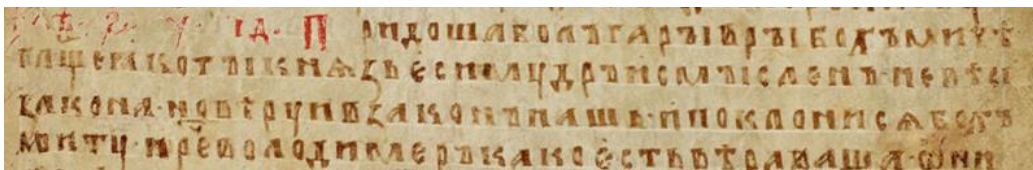 П ридоша болъгарꙑ вѣрꙑ бохъмичѣ
глщe ꙗко тꙑ кнѧзь єси мудръ и смꙑсленъ не вѣси
закона · но вѣруи въ законъ нашь и поклонисѧ бохъ
миту · и реⷱ҇ володимеръ како єсть вѣра ваша · ѡни